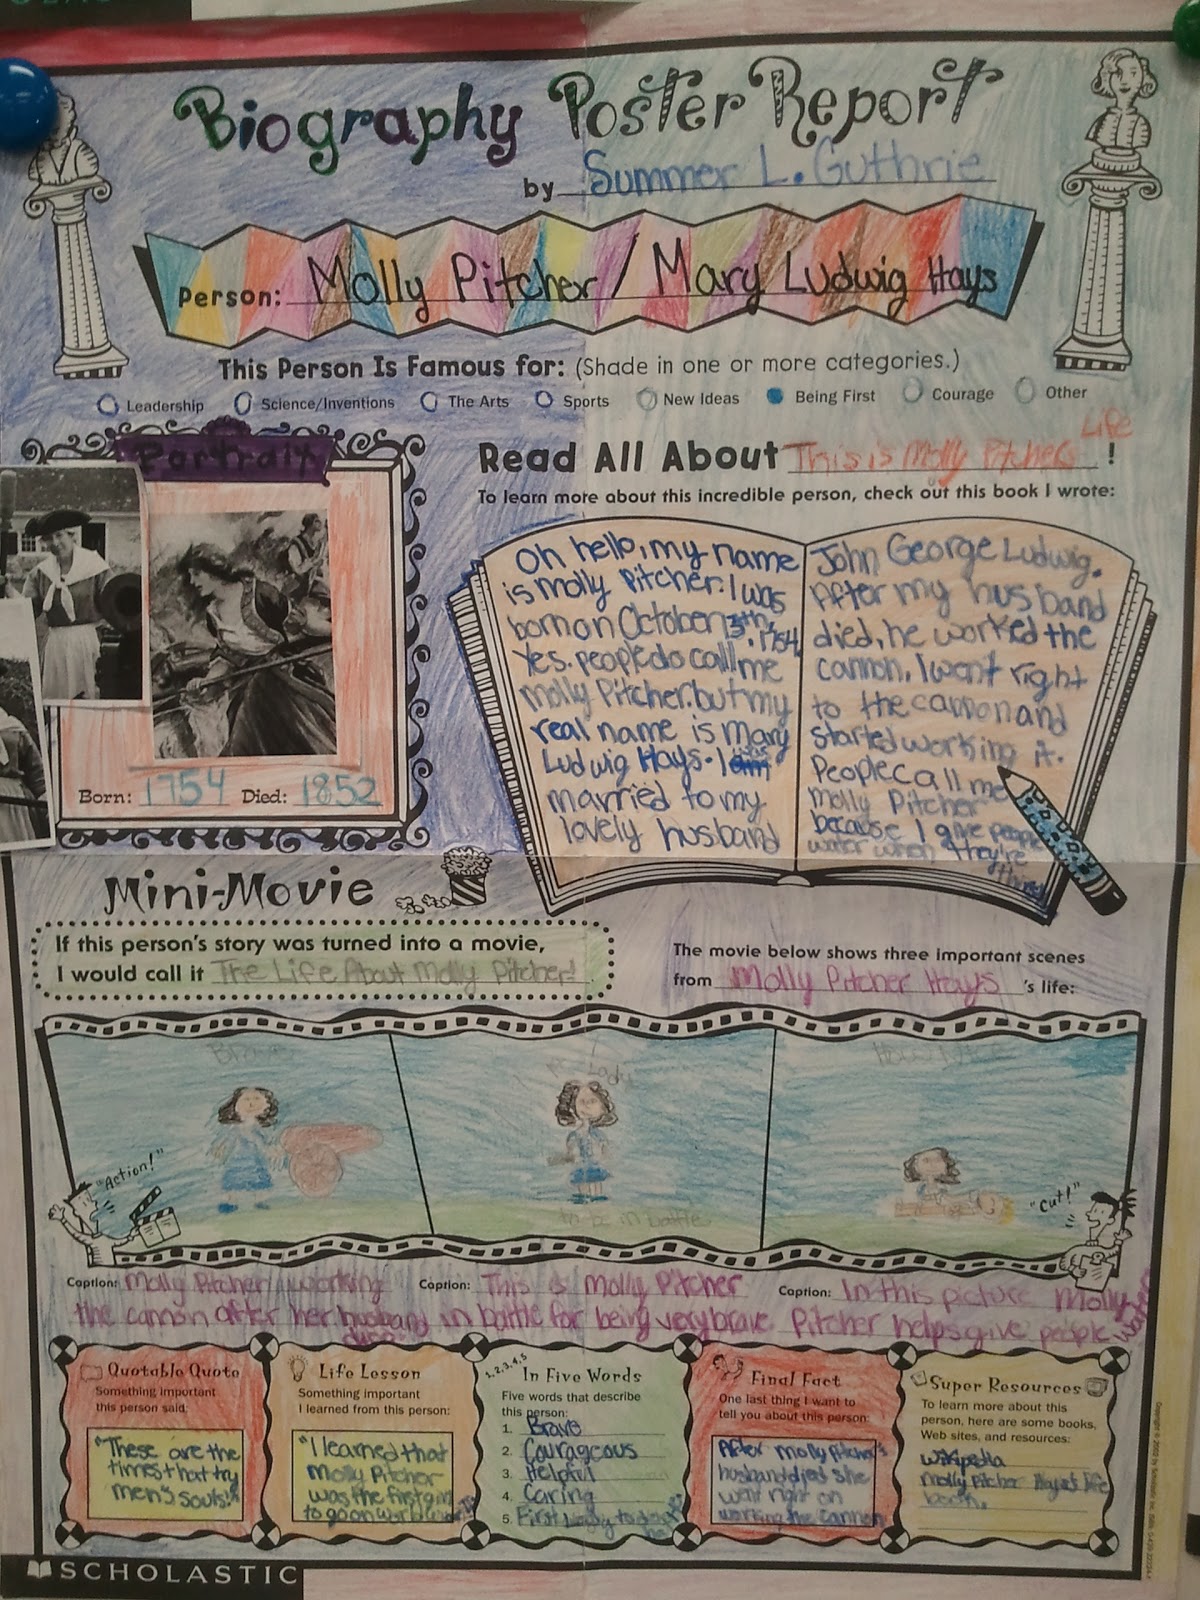 Biography Poster Report
by Summer L. Guthrie
Person: Molly Pitcher / Mary Ludwig Hays
This Person Is Famous for: (Shade in one or more categories.)
Leadership Science/Inventions The Arts Sports New Ideas Being First Courage Other
Portrait
Born: 1754 Died: 1852
Read All About This is Molly Pitchers Life !
To learn more about this incredible person, check out this book I wrote:
Oh hello, my name
is molly Pitcher. I was
born on October 13th, 1754.
Yes. people do call me
Molly Pitcher. but my
real name is Mary
Ludwig Hays. I was
married to my
lovely husband
John George Ludwig.
After my husband
died, he worked the
cannon, I went right
to the cannon and
started working it.
People call me
Molly Pitcher
because I give people
water when they're
thirsty
Mini-Movie
If this person's story was turned into a movie,
I would call it The Life About Molly Pitcher! .
The movie below shows three important scenes
from Molly Pitcher Hays 's life:
Brave
Lady
to be in battle
"Action!"
"Cut!"
Caption: Molly Pitcher working
the cannon after her husband
died.
Caption: This is Molly Pitcher
in battle for being very brave.
Caption: In this picture Molly
Pitcher helps give people water
Quotable Quote
Something important
this person said:
"These are the
times that try
men's souls."
Life Lesson
Something important
I learned from this person:
"I learned that
Molly Pitcher
was the first girl
to go on
1, 2, 3, 4, 5
In Five Words
Five words that describe
this person:
1. Brave
2. Courageous
3. Helpful
4. Caring
5. First lady to
Final Fact
One last thing I want to
tell you about this person:
After Molly Pitcher's
husband died she
went right on
working the cannon
Super Resources
To learn more about this
person, here are some books,
Web sites, and resources:
Wikipedia
Molly Pitcher Hays life
book.
SCHOLASTIC